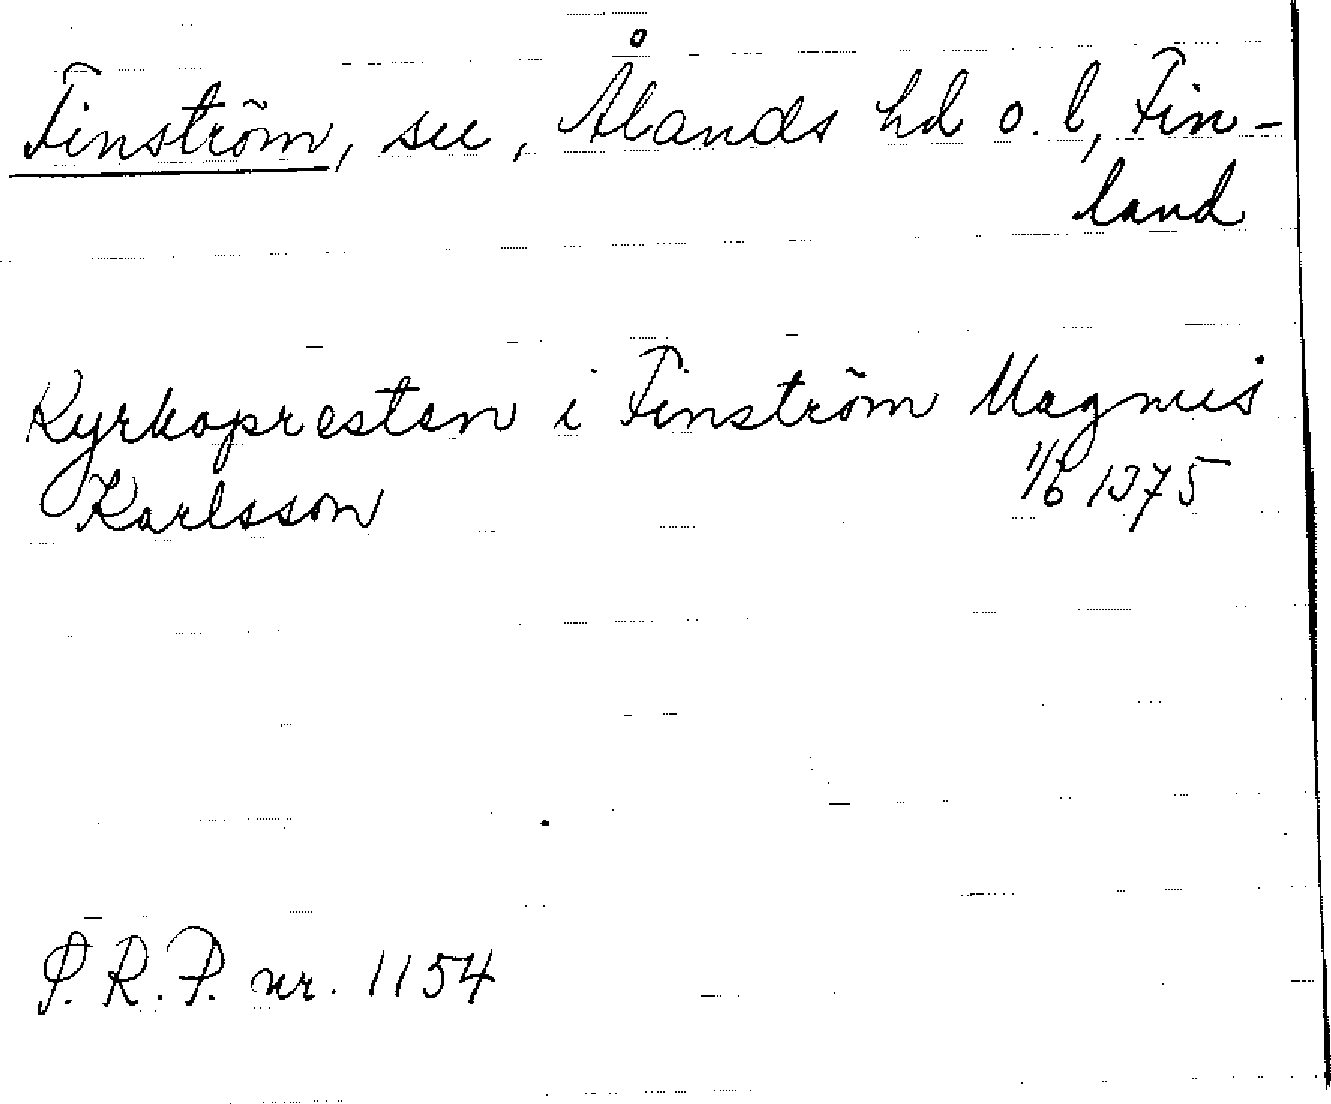 Finström, su, Ålands hd o. l, Fin-
land
Kyrkopresten i Finström Magnus
Karlsson 1/6 1375
S.R.P. nr. 1154